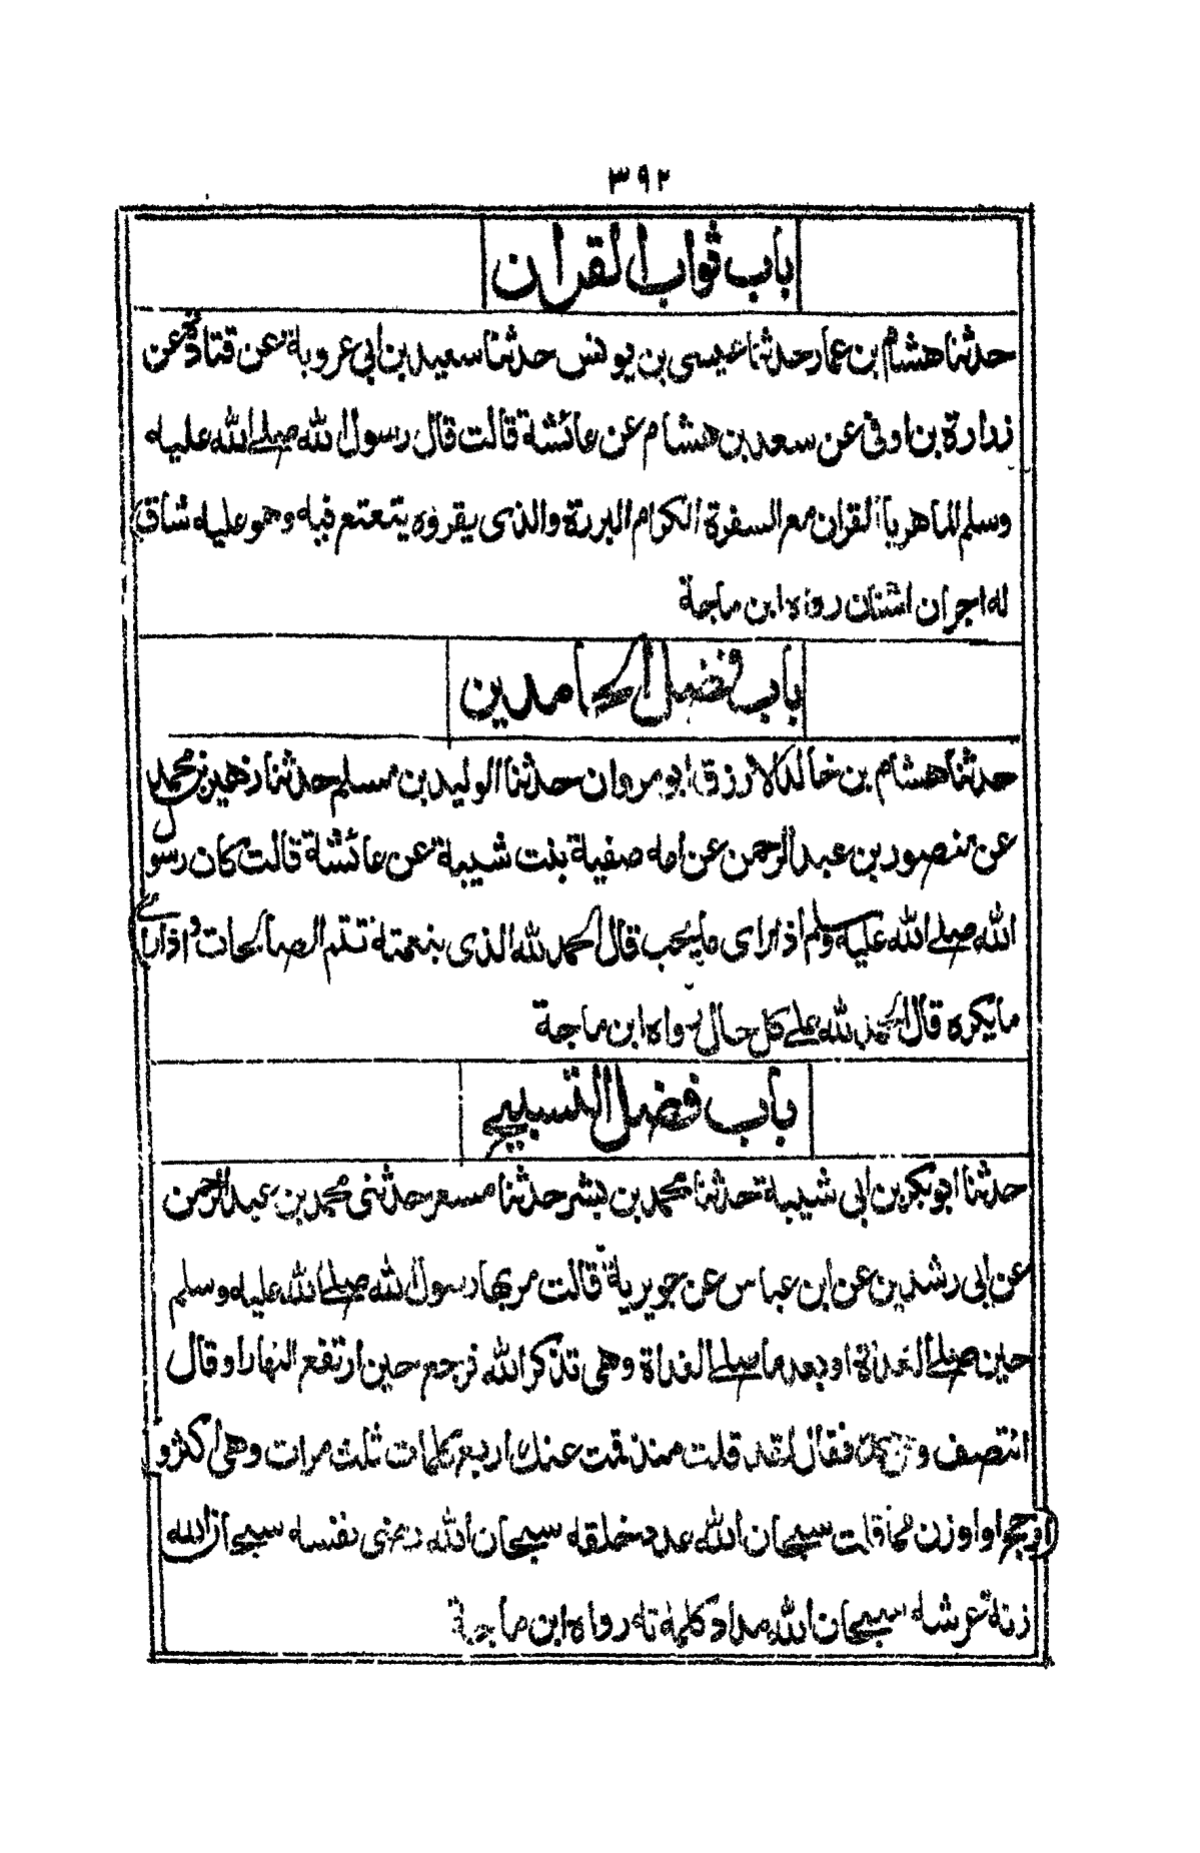 ٣٩٢
باب ثواب القران
حدثنا هشام بن عمار حدثنا عيسى بن يونس حدثنا سعيد بن ابي عروبة عن قتادة عن
زرارة بن اوفى عن سعد بن هشام عن عائشة قالت قال رسول الله صلى الله عليه
وسلم الماهر بالقران مع السفرة الكرام البررة والذى يقرؤه يتعتع فيه وهو عليه شاق
له اجران اثنان رواه ابن ماجة
باب فضل الحامدين
حدثنا هشام بن خالد الازرق ابو مروان حدثنا الوليد بن مسلم حدثنا زهير بن محمد
عن منصور بن عبد الرحمن عن امه صفية بنت شيبة عن عائشة قالت كان رسول
الله صلى الله عليه وسلم اذا راى ما يحب قال الحمد لله الذى بنعمته تتم الصالحات واذا راى
ما يكره قال الحمد لله على كل حال رواه ابن ماجة
باب فضل التسبيح
حدثنا ابو بكر بن ابي شيبة حدثنا محمد بن بشر حدثنا مسعر حدثنى محمد بن عبد الرحمن
عن ابي رشدين عن ابن عباس عن جويرية قالت مر بها رسول الله صلى الله عليه وسلم
حين صلى الغداة او بعد ما صلى الغداة وهى تذكر الله فرجع حين ارتفع النهار او قال
انتصف وهى فقال لقد قلت منذ قمت عنك اربع كلمات ثلث مرات وهى اكثر و
ارجح او اوزن مما قلت سبحان الله عدد خلقه سبحان الله رضى نفسه سبحان الله
زنة عرشه سبحان الله مداد كلماته رواه ابن ماجة